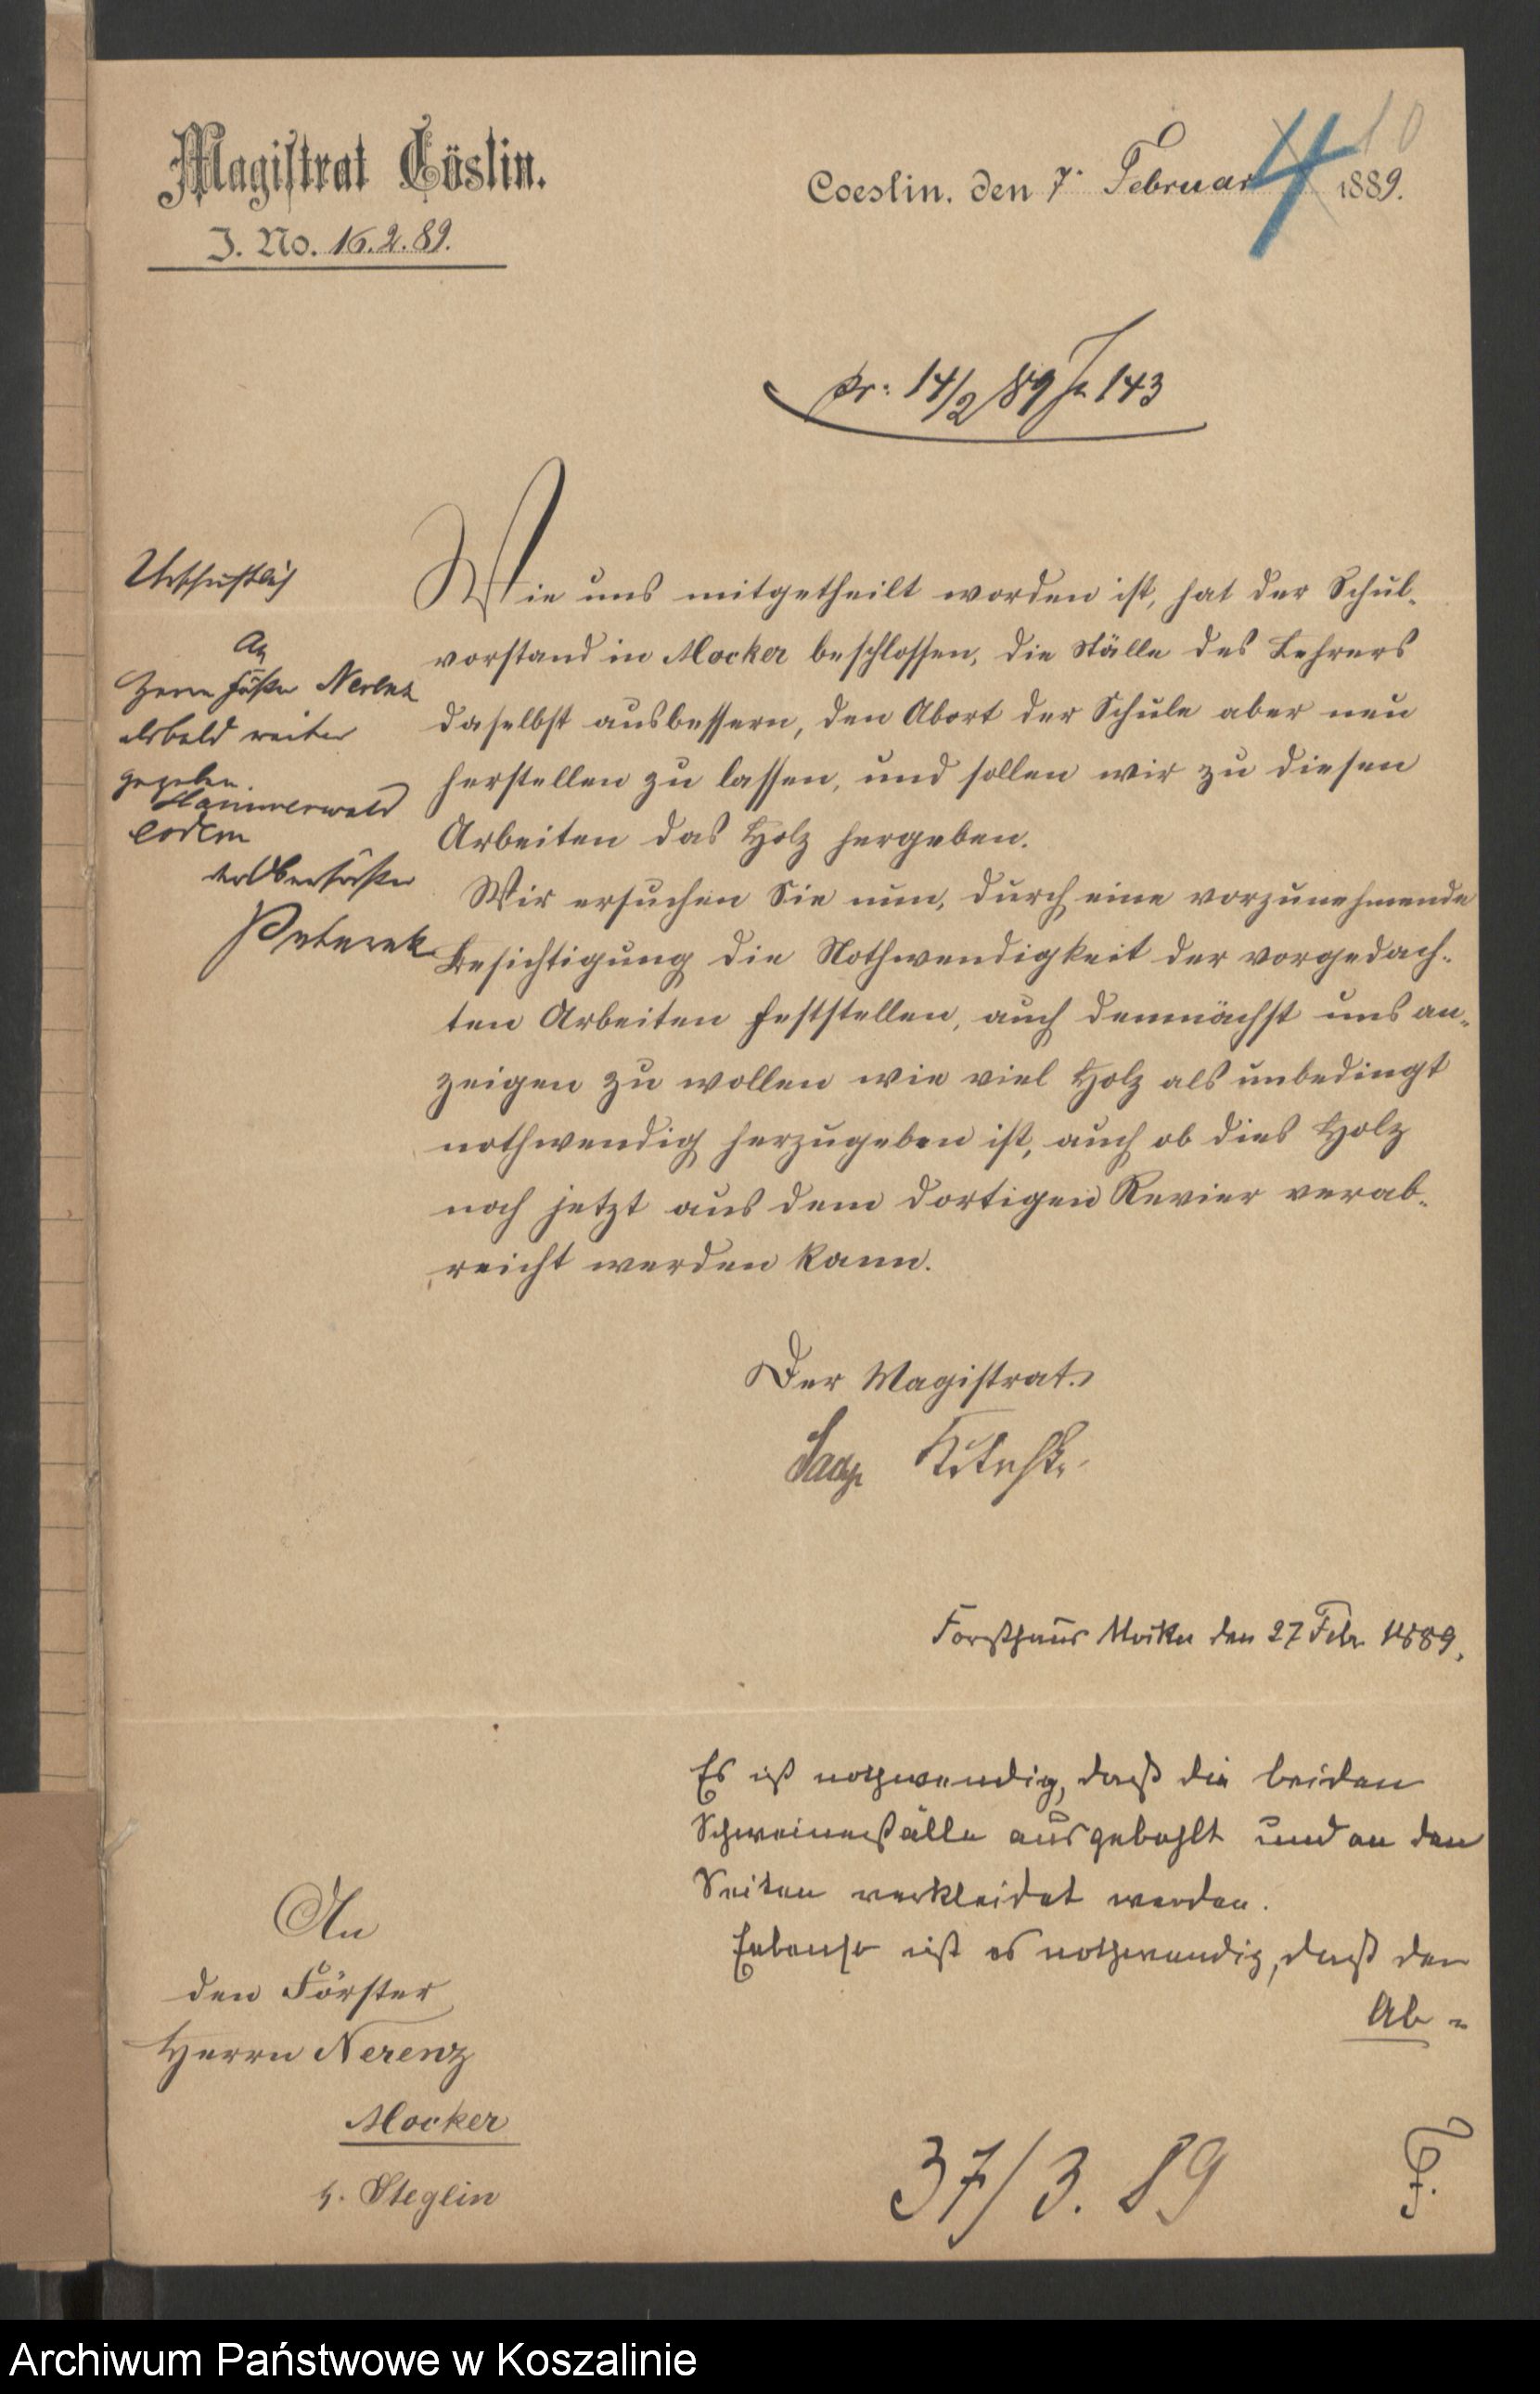 Magistrat Cöslin.
J. No. 16.2.89.
Coeslin, den 7. Februar 1889.
4
10
pr: 14/2 89 J 143
Urschriftlich
An
Herrn Förster Nerenz
alsbald weiter
gegeben.
eodem
der Oberförster
Wie uns mitgetheilt worden ist, hat der Schul-
vorstand in Mocker beschlossen, die Ställe des Lehrers
daselbst ausbessern, den Abort der Schule aber neu
herstellen zu lassen, und sollen wir zu diesen
Arbeiten das Holz hergeben.
Wir ersuchen Sie nun, durch eine vorzunehmende
Besichtigung die Nothwendigkeit der vorgedach-
ten Arbeiten feststellen, auch demnächst uns an-
zeigen zu wollen wie viel Holz als unbedingt
nothwendig herzugeben ist, auch ob dies Holz
noch jetzt aus dem dortigen Revier verab-
reicht werden kann.
Der Magistrat.
Forsthaus Mocker den 27 Febr 1889.
Es ist nothwendig, daß die beiden
Schweineställe ausgebohlt und an den
Seiten verkleidet werden.
Ebenso ist es nothwendig, daß der
Ab-
An
den Förster
Herrn Nerenz
Mocker
b. Steglin
37/3.89
F.
Archiwum Państwowe w Koszalinie